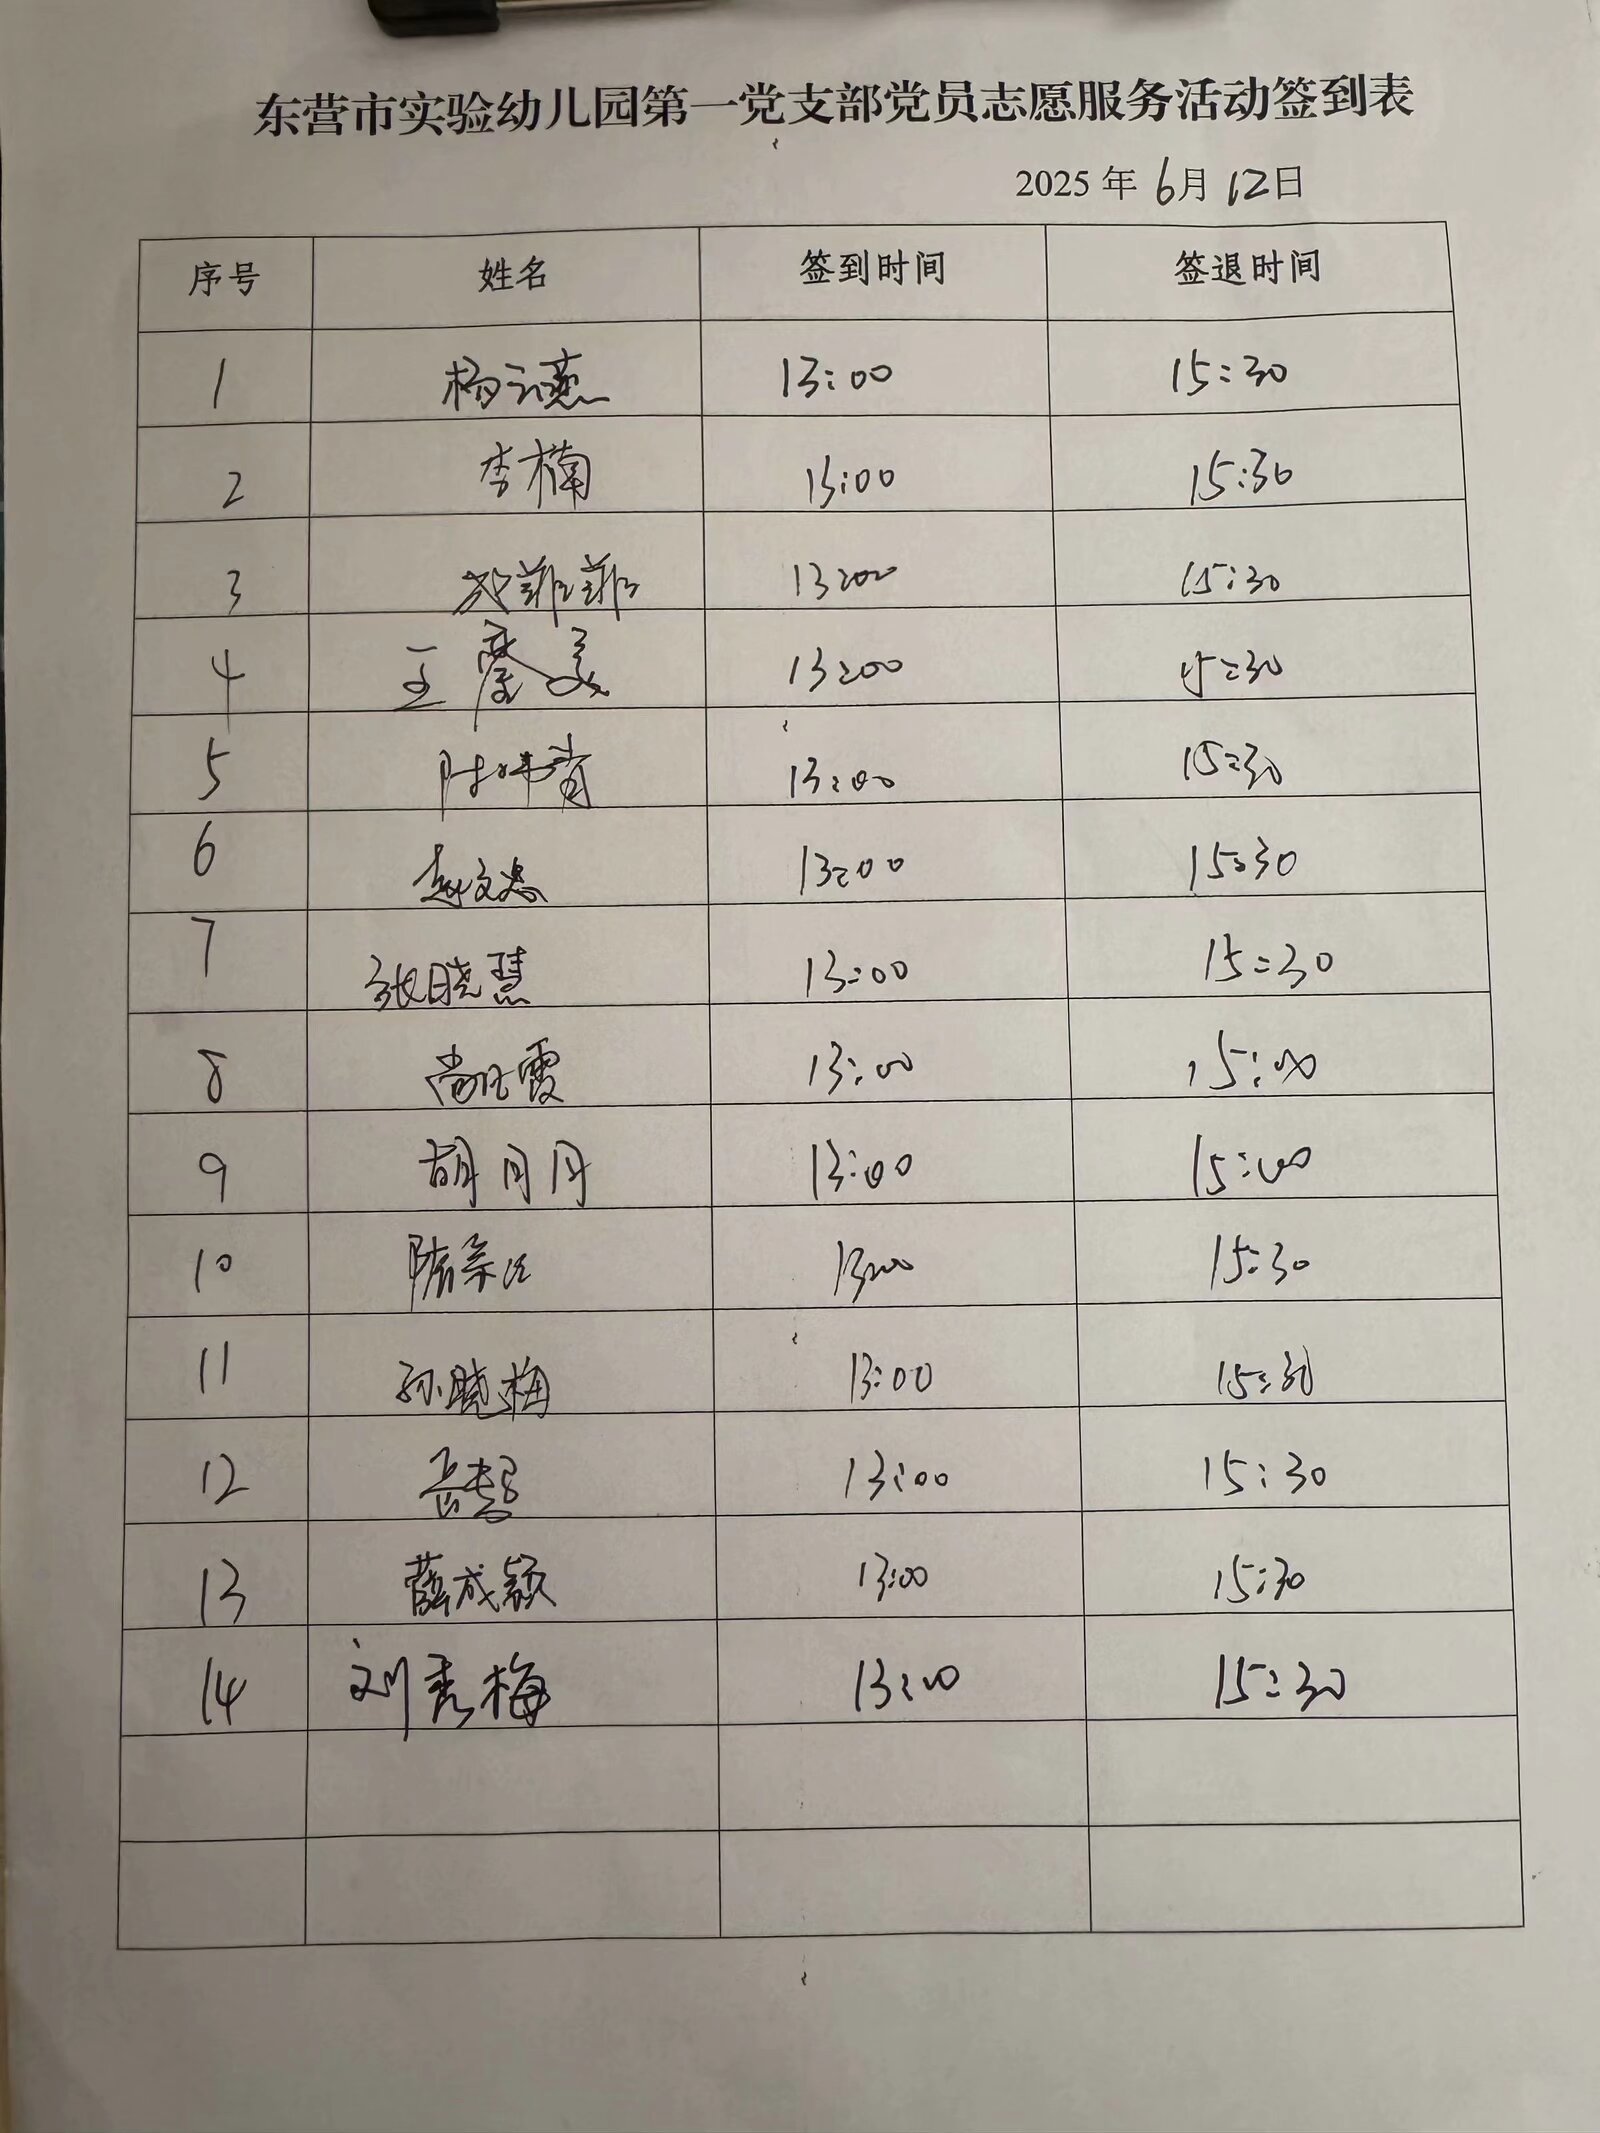 东营市实验幼儿园第一党支部党员志愿服务活动签到表
2025年6月12日
序号 姓名 签到时间 签退时间
1 杨 13:00 15:30
2 李楠 13:00 15:30
3 菲菲 13:00 15:30
4 王馨 13:00 15:30
5 陈 13:00 15:30
6 赵文 13:00 15:30
7 张晓慧 13:00 15:30
8 尚 霞 13:00 15:00
9 胡月月 13:00 15:00
10 隋 13:00 15:30
11 孙晓梅 13:00 15:30
12 岳 13:00 15:30
13 薛成颖 13:00 15:30
14 刘秀梅 13:00 15:30